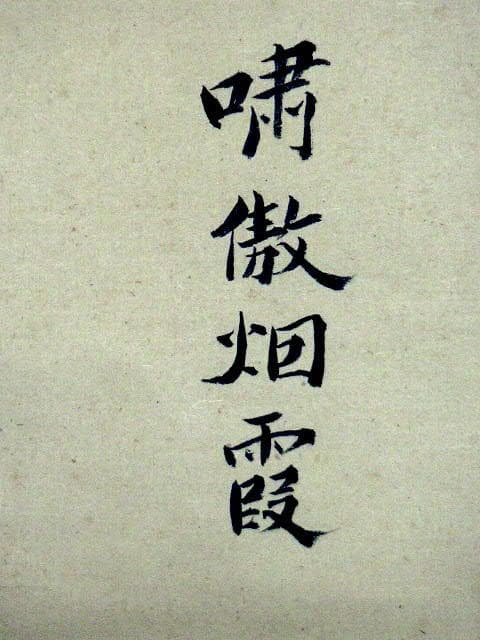 啸傲烟霞